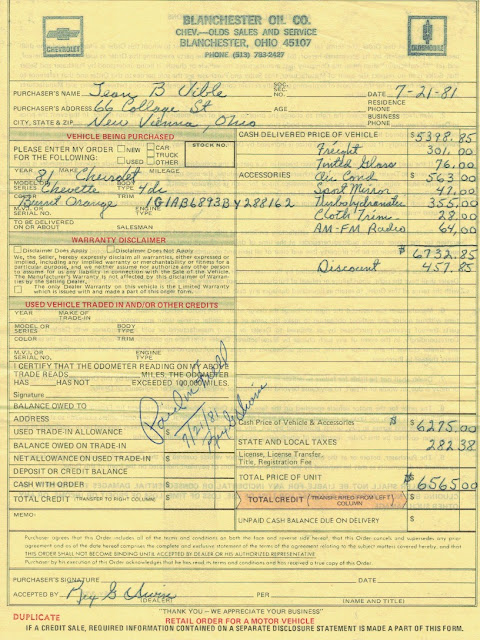 BLANCHESTER OIL CO.
CHEV.—OLDS SALES AND SERVICE
BLANCHESTER, OHIO 45107
PHONE (513) 783-2427
CHEVROLET
OLDSMOBILE
PURCHASER'S NAME Jean B Vible SOC. SEC. NO. DATE 7-21-81
PURCHASER'S ADDRESS 66 College St AGE RESIDENCE PHONE
CITY, STATE & ZIP New Vienna, Ohio BUSINESS PHONE
VEHICLE BEING PURCHASED
PLEASE ENTER MY ORDER FOR THE FOLLOWING: NEW USED CAR TRUCK OTHER STOCK NO.
YEAR 81 MAKE Chevrolet MILEAGE
MODEL OR SERIES Chevette BODY TYPE 4dr
COLOR Burnt Orange TRIM 1G1AB6893BY288162
M.V.I. OR SERIAL NO. ENGINE TYPE
TO BE DELIVERED ON OR ABOUT SALESMAN
WARRANTY DISCLAIMER
Disclaimer Does Apply Disclaimer Does Not Apply
We, the Seller, hereby expressly disclaim all warranties, either expressed or implied, including any implied warranty or merchantability or fitness for a particular purpose, and we neither assume nor authorize any other person to assume for us any liability in connection with the Sale of the Vehicle. The Manufacturer's Warranty is not affected by this disclaimer of Warranties by the Selling Dealer.
The only Dealer Warranty on this vehicle is the Limited Warranty which is issued with and made a part of this order form.
USED VEHICLE TRADED IN AND/OR OTHER CREDITS
YEAR MAKE OF TRADE-IN
MODEL OR SERIES BODY TYPE
COLOR TRIM
M.V.I. OR SERIAL NO. ENGINE TYPE
I CERTIFY THAT THE ODOMETER READING ON MY ABOVE
TRADE READS MILES, THE ODOMETER
HAS HAS NOT EXCEEDED 100,000 MILES.
Signature
BALANCE OWED TO
ADDRESS
USED TRADE-IN ALLOWANCE $
BALANCE OWED ON TRADE-IN $
NET ALLOWANCE ON USED TRADE-IN $
DEPOSIT OR CREDIT BALANCE $
CASH WITH ORDER $
TOTAL CREDIT (TRANSFER TO RIGHT COLUMN) $
Paid in Full
7/21/81
CASH DELIVERED PRICE OF VEHICLE $5398.85
Freight 301.00
Tinted Glass 76.00
ACCESSORIES Air Cond $ 563.00
Sport Mirror 47.00
Turbohydramatic 355.00
Cloth Trim 28.00
AM-FM Radio 64.00
$ 6732.85
Discount 457.85
Cash Price of Vehicle & Accessories $ 6275.00
STATE AND LOCAL TAXES 282 38
License, License Transfer, Title, Registration Fee
TOTAL PRICE OF UNIT $ 6565.00
TOTAL CREDIT (TRANSFERRED FROM LEFT COLUMN)
UNPAID CASH BALANCE DUE ON DELIVERY $
MEMO:
Purchaser agrees that this Order includes all of the terms and conditions on both the face and reverse side hereof, that this Order cancels and supersedes any prior
agreement and as of the date hereof comprises the complete and exclusive statement of the terms of the agreement relating to the subject matters covered hereby, and that
THIS ORDER SHALL NOT BECOME BINDING UNTIL ACCEPTED BY DEALER OR HIS AUTHORIZED REPRESENTATIVE.
Purchaser by his execution of this Order acknowledges that he has read its terms and conditions and has received a true copy of this Order.
PURCHASER'S SIGNATURE DATE
ACCEPTED BY (DEALER) PER (NAME AND TITLE)
"THANK YOU – WE APPRECIATE YOUR BUSINESS"
DUPLICATE RETAIL ORDER FOR A MOTOR VEHICLE
IF A CREDIT SALE, REQUIRED INFORMATION CONTAINED ON A SEPARATE DISCLOSURE STATEMENT IS MADE A PART OF THIS FORM.